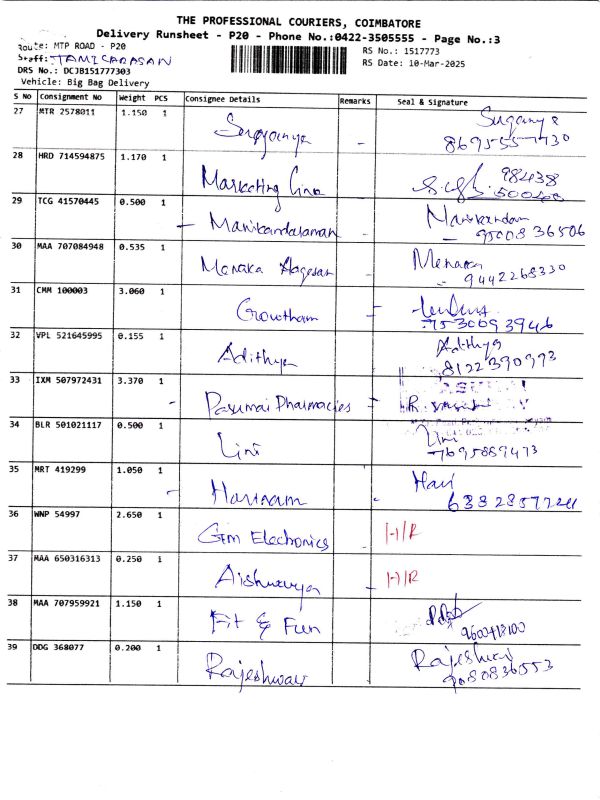 THE PROFESSIONAL COURIERS, COIMBATORE
Delivery Runsheet - P20 - Phone No.:0422-3505555 - Page No.:3
Route: MTP ROAD - P20
RS No.: 1517773
Staff: TAMILARASAN
RS Date: 10-Mar-2025
DRS No.: DCJB151777303
Vehicle: Big Bag Delivery
S No Consignment No Weight PCS Consignee Details Remarks Seal & Signature
27 MTR 2578011 1.150 1 Suganya - Suganya
28 HRD 714594875 1.170 1 Marketing - 98438
29 TCG 41570445 0.500 1 - Manikandaraman Manikandan
- 95008 36506
30 MAA 707084948 0.535 1 Menaka - Menaka
9442268330
31 CMM 100003 3.060 1 Gowtham -
7530093946
32 VPL 521645995 0.155 1 Adithya Adithya
8122390973
33 IXM 507972431 3.370 1 - Pasumai Pharmacies -
34 BLR 501021117 0.500 1 Lini Lini
7695889473
35 MRT 419299 1.050 1 - Harinam - Hari
36 WNP 54997 2.650 1 GTM Electronics H/R
37 MAA 650316313 0.250 1 Aishwarya - H/R
38 MAA 707959921 1.150 1 Fit & Fun
39 DDG 368077 0.200 1 Rajeshwari Rajeshwari
9080836553